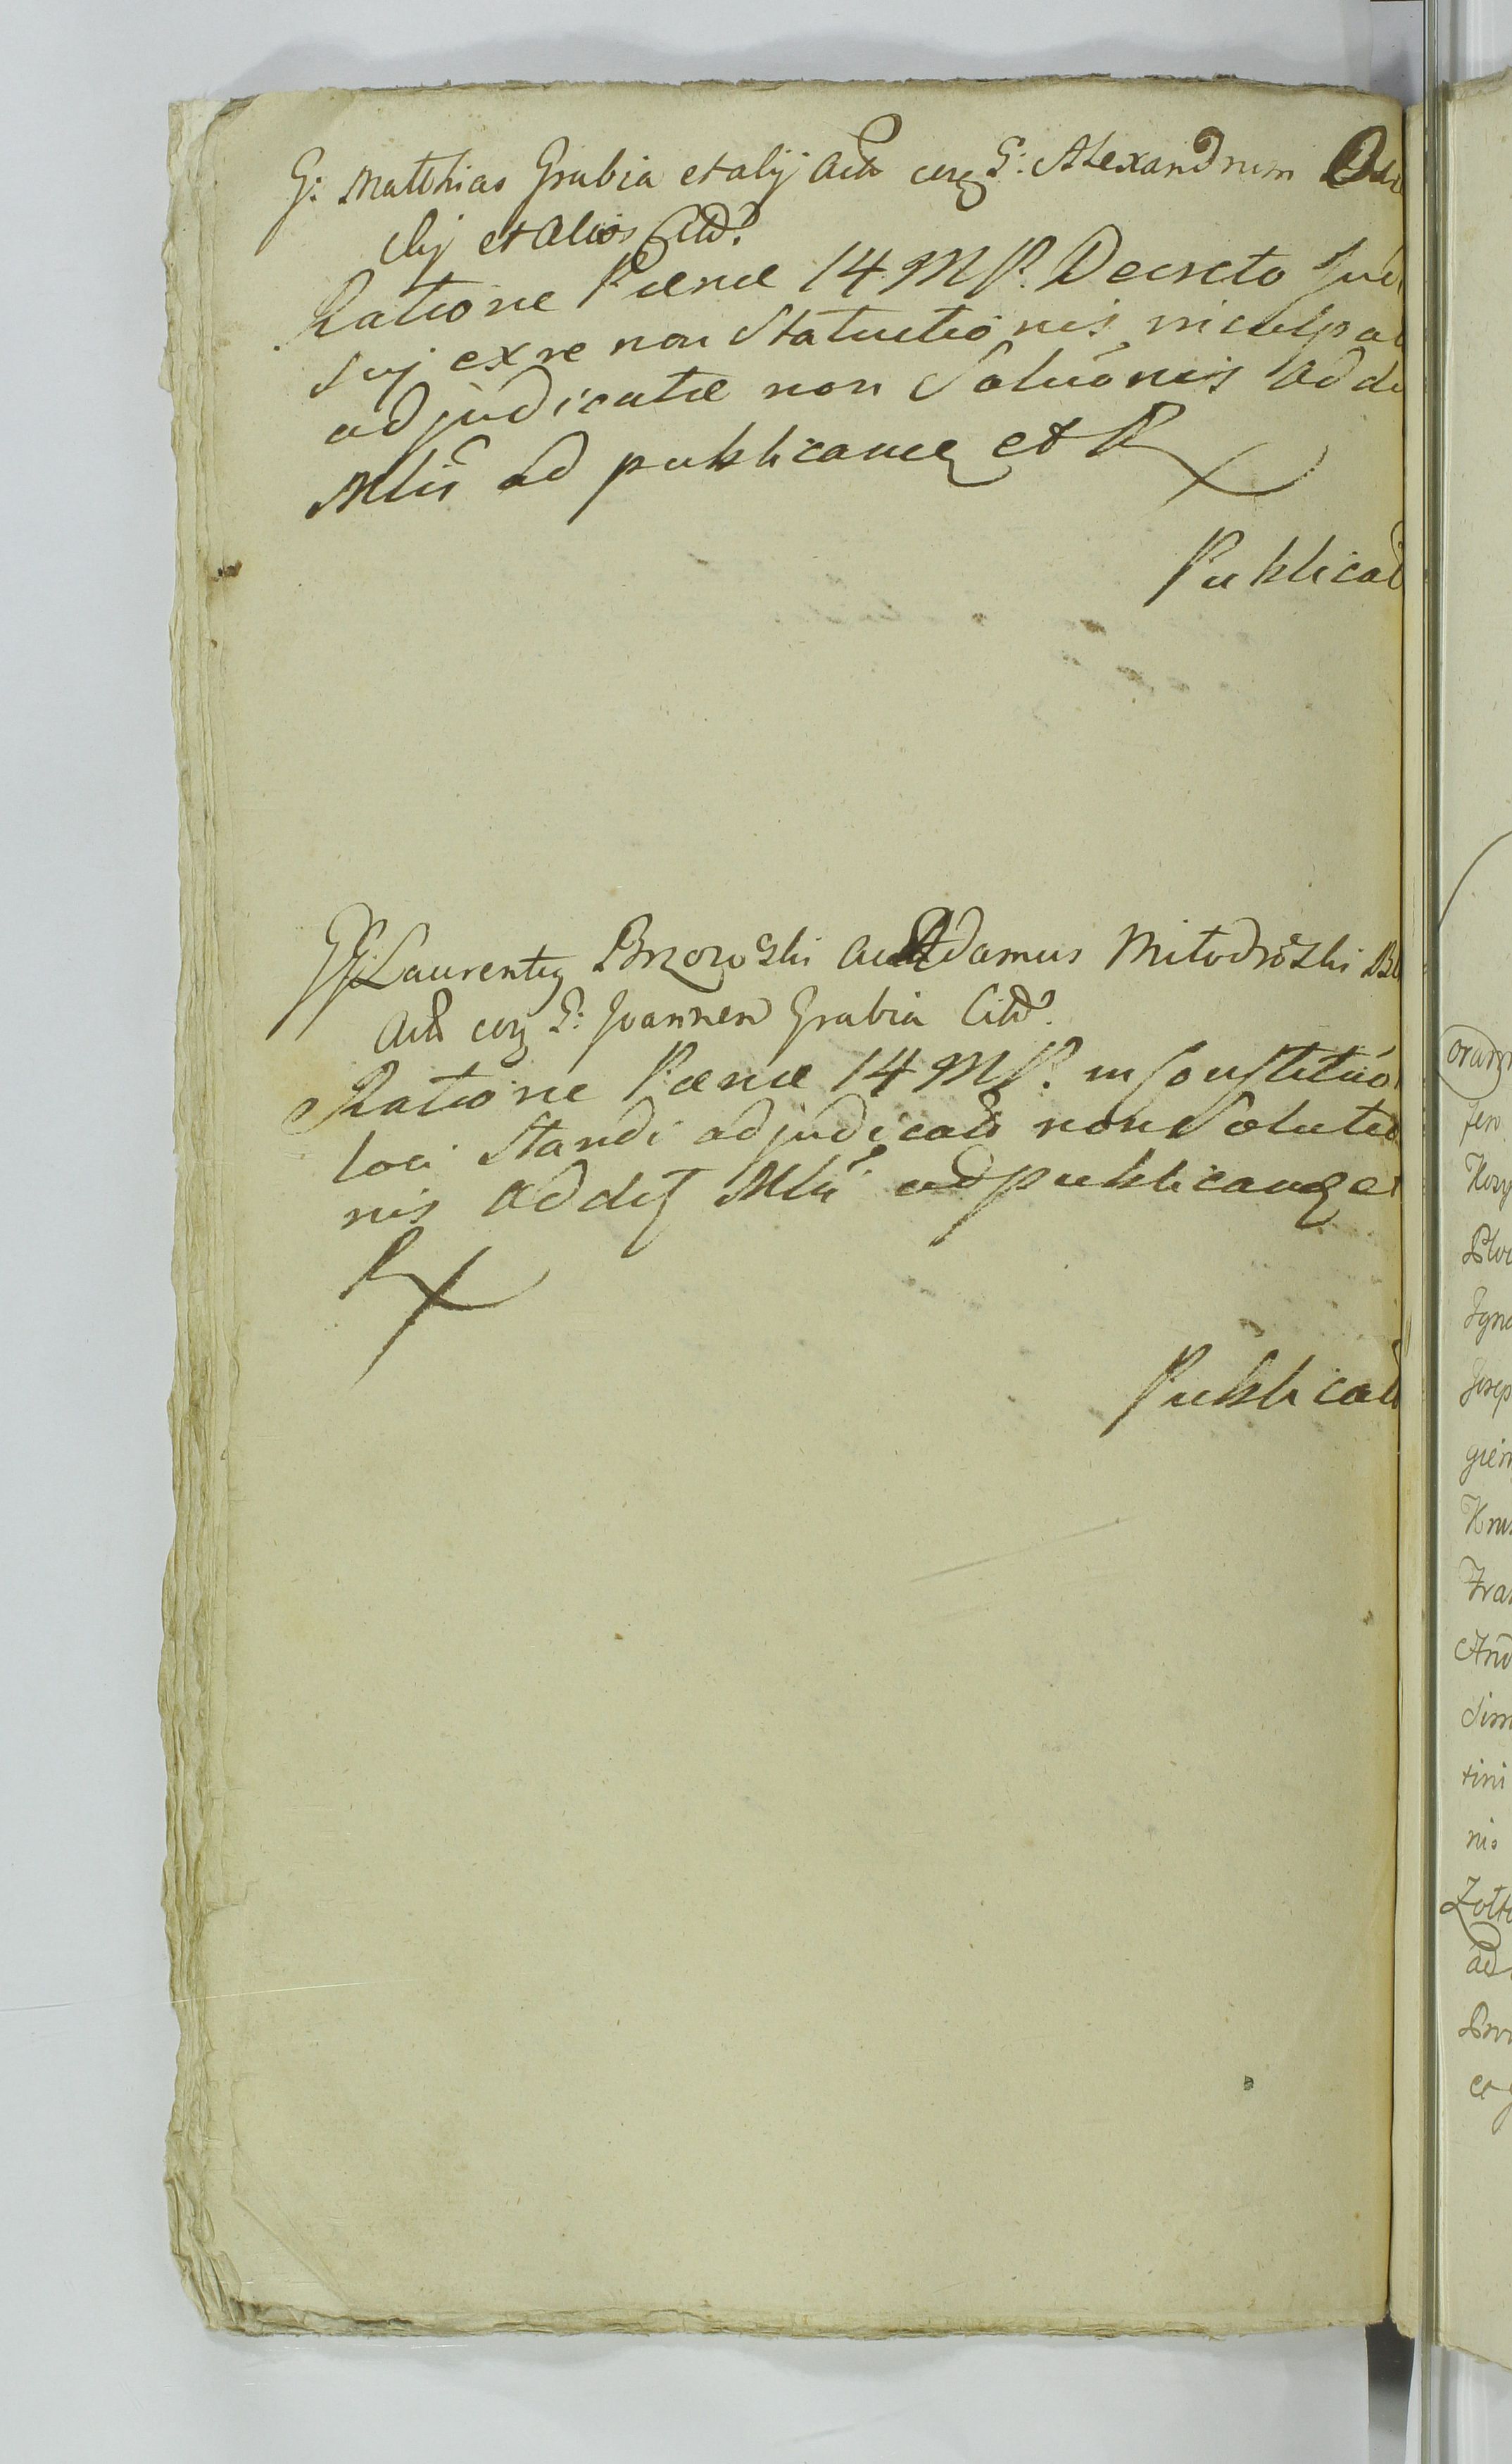 G: Matthias Grabia et alij Act cerg G: Alexandrum
et Alios Citd.
Ratione Pœnæ 14 MP. Decreto Jud
suj ex re non Statuitionis inculpa
adjudicatæ non Soluõnis ad d
Mlis ad publicanɖ et R
Publicat
GG: Laurenty Brzozoski Adamus Miłodroski
Act cerg G: Joannem Grabia Citd.
Ratione Pœnæ 14 MP. in Constituõ
loci Standi adjudicatæ non Solutio
nis ad dig Mlis ad publicanɖ et
R
Publicat
oram
fen
Kozy
Igna
Josep
gien
Kru
Fra
And
Sim
tini
nis
Zołto
ad
et